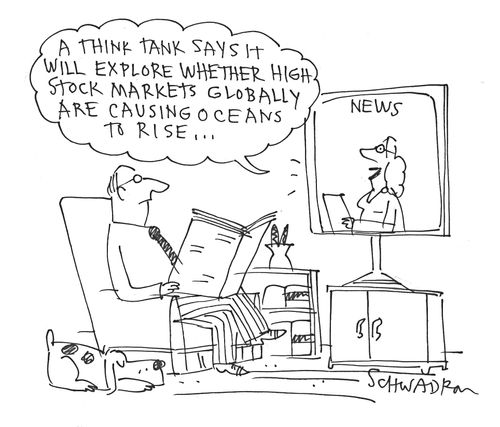 A THINK TANK SAYS IT
WILL EXPLORE WHETHER HIGH
STOCK MARKETS GLOBALLY
ARE CAUSING OCEANS
TO RISE...
NEWS
SCHWADRON